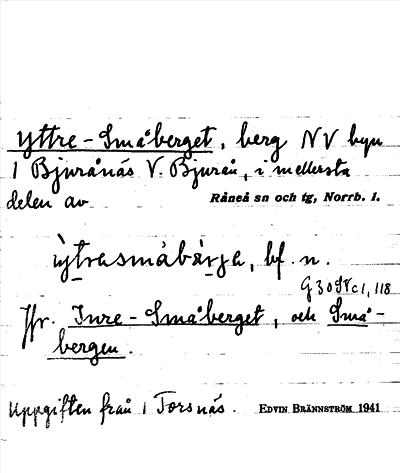 Yttre-Småberget, berg NV byn
1 Bjurånäs V. Bjurån, i mellersta
delen av Råneå sn och tg, Norrb. l.
ỳtrasmàbàrja, bf. n.
G30SVc1, 118
Jfr. Inre-Småberget, och Små-
bergen.
Uppgiften från 1 Torsnäs. EDVIN BRÄNNSTRÖM 1941